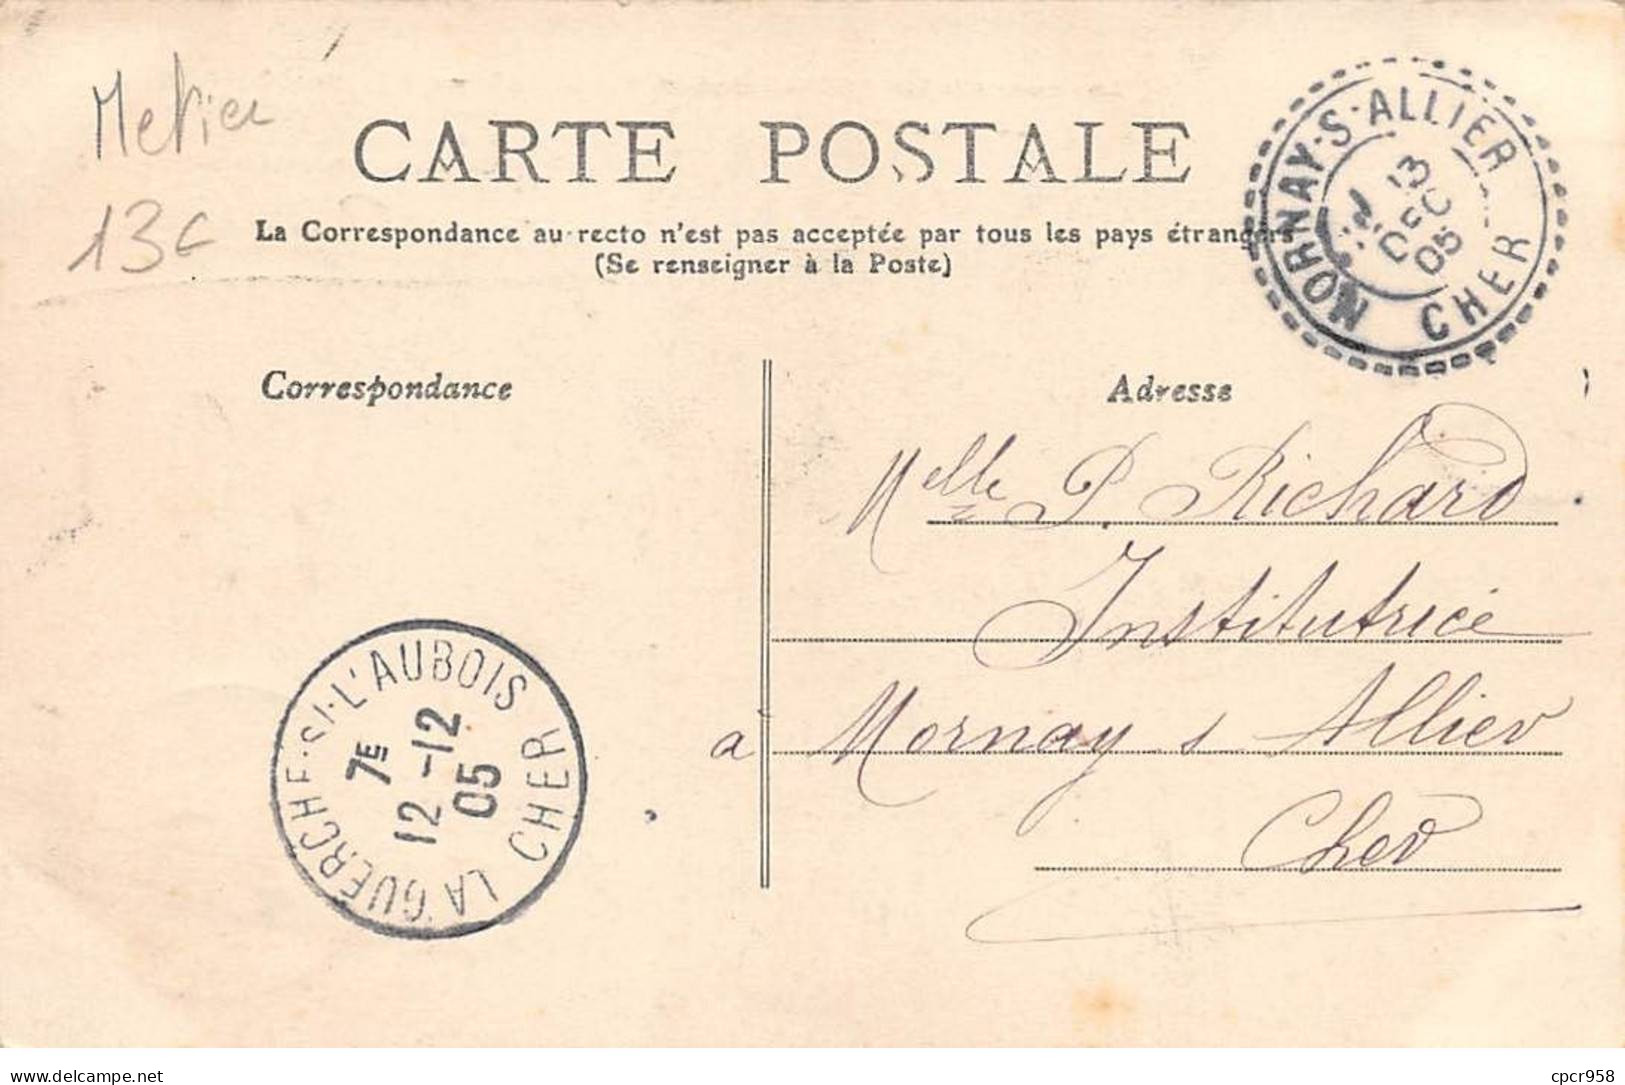 Metier
13c
CARTE POSTALE
La Correspondance au recto n'est pas acceptée par tous les pays étrangers
(Se renseigner à la Poste)
MORNAY-S-ALLIER
13
DEC
05
CHER
Correspondance
Adresse
Melle P. Richard
Institutrice
a Mornay s Allier
Cher
LA GUERCHE-SI-L'AUBOIS
7E
12-12
05
CHER
delcampe.net
cpcr958